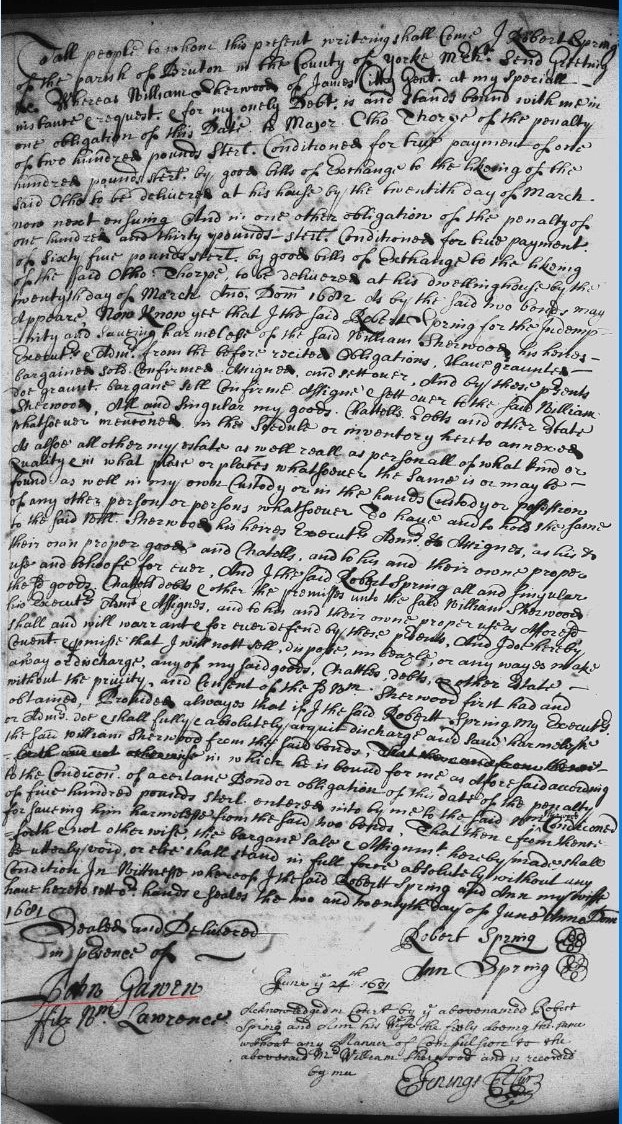 To all people to whome this present writeing shall Come I Robert Spring
of the parish of Bruton in the County of Yorke Mercht. Send Greeting
&c. Whereas William Sherwood of James Citty Gent. at my Speciall
instance & request, & for my onely Debt, is and stands bound with me in
one obligation of this Date to Major Otho Thorpe of the penalty
of two hundred pounds sterl. Conditioned for true payment of one
hundred pounds sterl. by good bills of Exchange to the likeing of the
said Otho to be delivered at his house by the twentith day of March
now next ensuing And in one other obligation of the penalty of
one hundred and thirty pounds sterl. Conditioned for true payment
of Sixty five pounds sterl. by good bills of Exchange to the likeing
of the said Otho Thorpe, to be delivered at his dwellinghouse by the
twentyth day of March Ano. Dom 1682 As by the said two bonds may
Appeare, Now Know yee that I the said Robert Spring for the indemp-
nity and saveing harmelesse of the said William Sherwood, his heires
Executrs & Admrs. from the before recited Obligations, Have graunted
bargained sold Confirmed Assigned, and sett over, And by these psents
doe graunt bargane sell Confirme Assigne & sett over to the said William
Sherwood, All and Singular my goods, Chattells, debts and other Estate
whatsoever mentioned in the Scedule or inventory hereto annexed
As alsoe all other my estate as well reall as personall of what kind or
Quality & in what place or places whatsoever the same is or may be
found as well in my own Custody or in the hands Custody or possession
of any other person or persons whatsoever To have and to hold the same
to the said Wm. Sherwood his heires Executrs Admrs. & Assignes, as his &
their own proper goods and Chatells, and to his and their owne proper
use and behoofe for ever, And I the said Robert Spring all and singular
the sd goods, Chattels debts & other the premisses unto the said William Sherwood
his Executrs Admrs & Assignes, and to his and their owne proper use as Aforesd
shall and will warrant & for ever defend by these psents, And I doe hereby
Covent. & pmise that I will nott sell, dispose, imbeazle, or any wayes make
away or discharge, any of my said goods, Chattles, debts, & other Estate
without the privity, and Consent of the sd Wm. Sherwood first had and
obtained, Provided alwayes that if I the said Robert Spring My Executrs
or Admrs. doe & shall fully & absolutely acquit discharge and save harmelesse
the said William Sherwood from the said bonds,
in which he is bound for me as aforesaid according
to the Condicon. of a certane Bond or obligation of this date of the penalty
of five hundred pounds sterl. entered into by me to the said Conditioned
for saveing him harmelesse from the said two bonds, That then & from thence
forth & not other wise, the bargane sale & Assignmt hereby made shall
be utterly void, or else shall stand in full force absolutely without any
Condition In Wittness whereof I the said Robertt Spring and Ann my wife
have hereto sett or. hands & seales the two and twentyth day of June Anno Dom
1681
Sealed and Delivered
in psence of
Robert Spring
Ann Spring
John Gawen
ffitz Wm. Lawrence
June ye 24th 1681
Acknowledged in Court by ye abovenamed Robert
Spring and Ann his Wife
without any Manner of Compulsion to the
abovesaid Mr. William Sherwood and is recorded
by me
EJenings